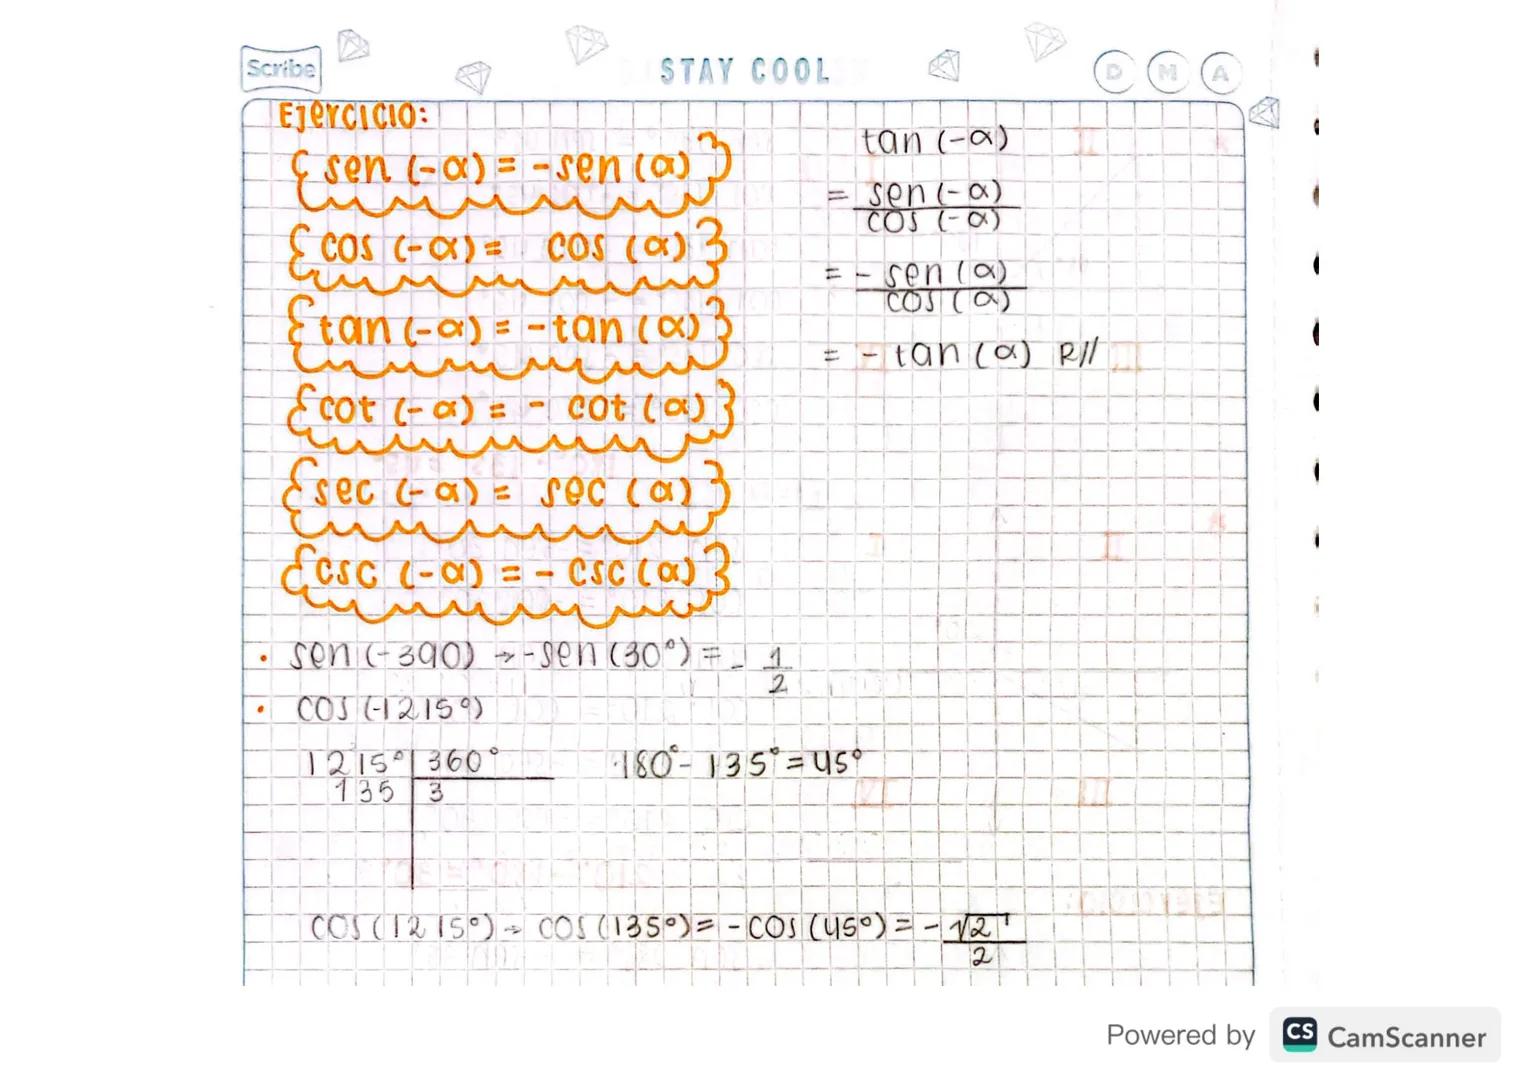 Scribe
STAY COOL
D M A
Ejercicio:
sen (-α) = -sen (α)
cos (-α) = cos (α)
tan (-α) = -tan (α)
cot (-α) = - cot (α)
sec (-α) = sec (α)
csc (-α) = - csc (α)
tan (-α)
= sen (-α)
cos (-α)
= - sen (α)
cos (α)
= - tan (α) R//
• sen (-390) → -sen (30°) = - 1
2
• cos (-1215°)
1215° | 360°
135 | 3
180° - 135° = 45°
cos (1215°) → cos (135°) = -cos (45°) = - √2
2
Powered by CS CamScanner